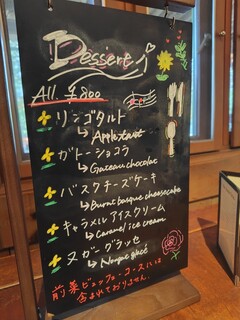 Dessert
All ¥800
リンゴタルト
↳ Apple tart
ガトーショコラ
↳ Gateau chocolat
バスクチーズケーキ
↳ Burnt basque cheesecake
キャラメルアイスクリーム
↳ Caramel ice cream
ヌガーグラッセ
↳ Nougat glacé
前菜ビュッフェ・コースには
含まれておりません。